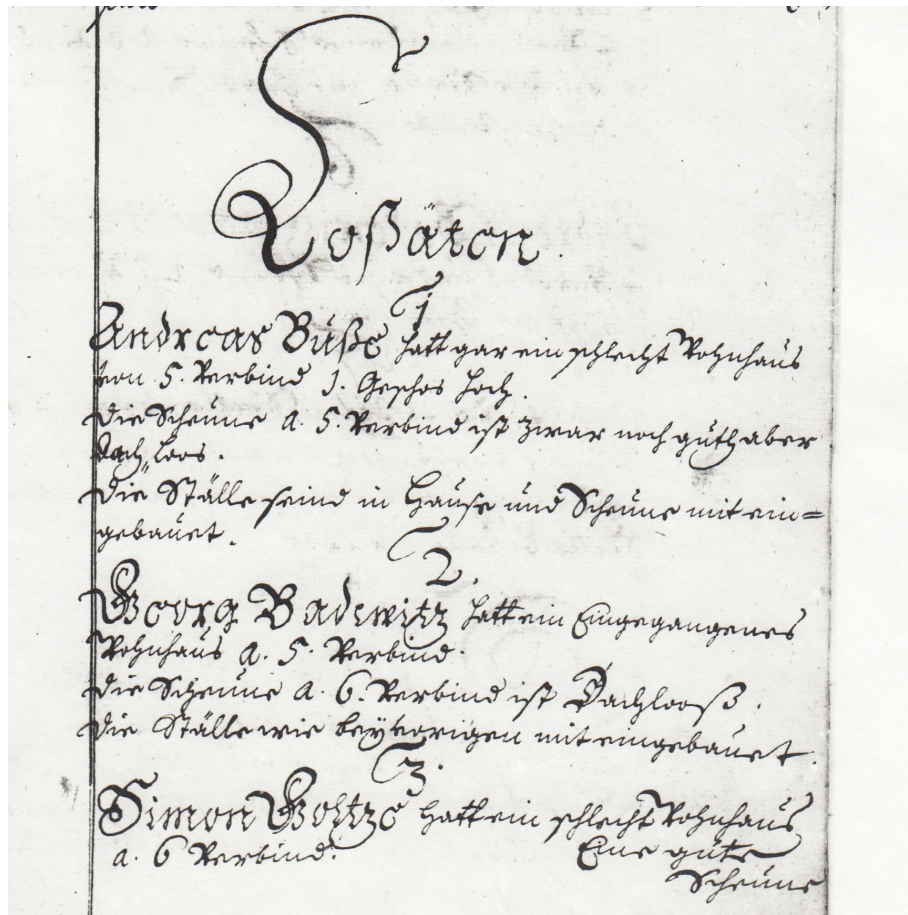 Coßäten.
1
Andreas Büße hatt gar ein schlecht Wohnhaus
von 5. Verbind 1. Geschos hoch.
Die Scheune a. 5. Verbind ist zwar noch guth aber
Dach loos.
Die Ställe seind in Hause und Scheune mit ein=
gebauet.
2.
Georg Badewitz hatt ein Eingegangenes
Wohnhaus a. 5. Verbind.
Die Scheune a. 6. Verbind ist Dachlooß.
Die Ställe wie bey vorigen mit eingebauet.
3.
Simon Goltze hatt ein schlecht Wohnhaus
a. 6 Verbind. Eine gute
Scheune